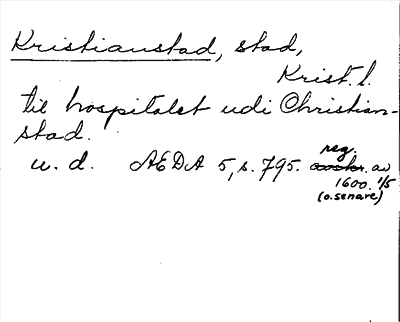 Kristianstad, stad,
Krist. l.
til hospitalet udi Christian-
stad.
reg.
u. d. AEDA 5, s. 795. avskr. av
1600. 1/5
(o. senare)